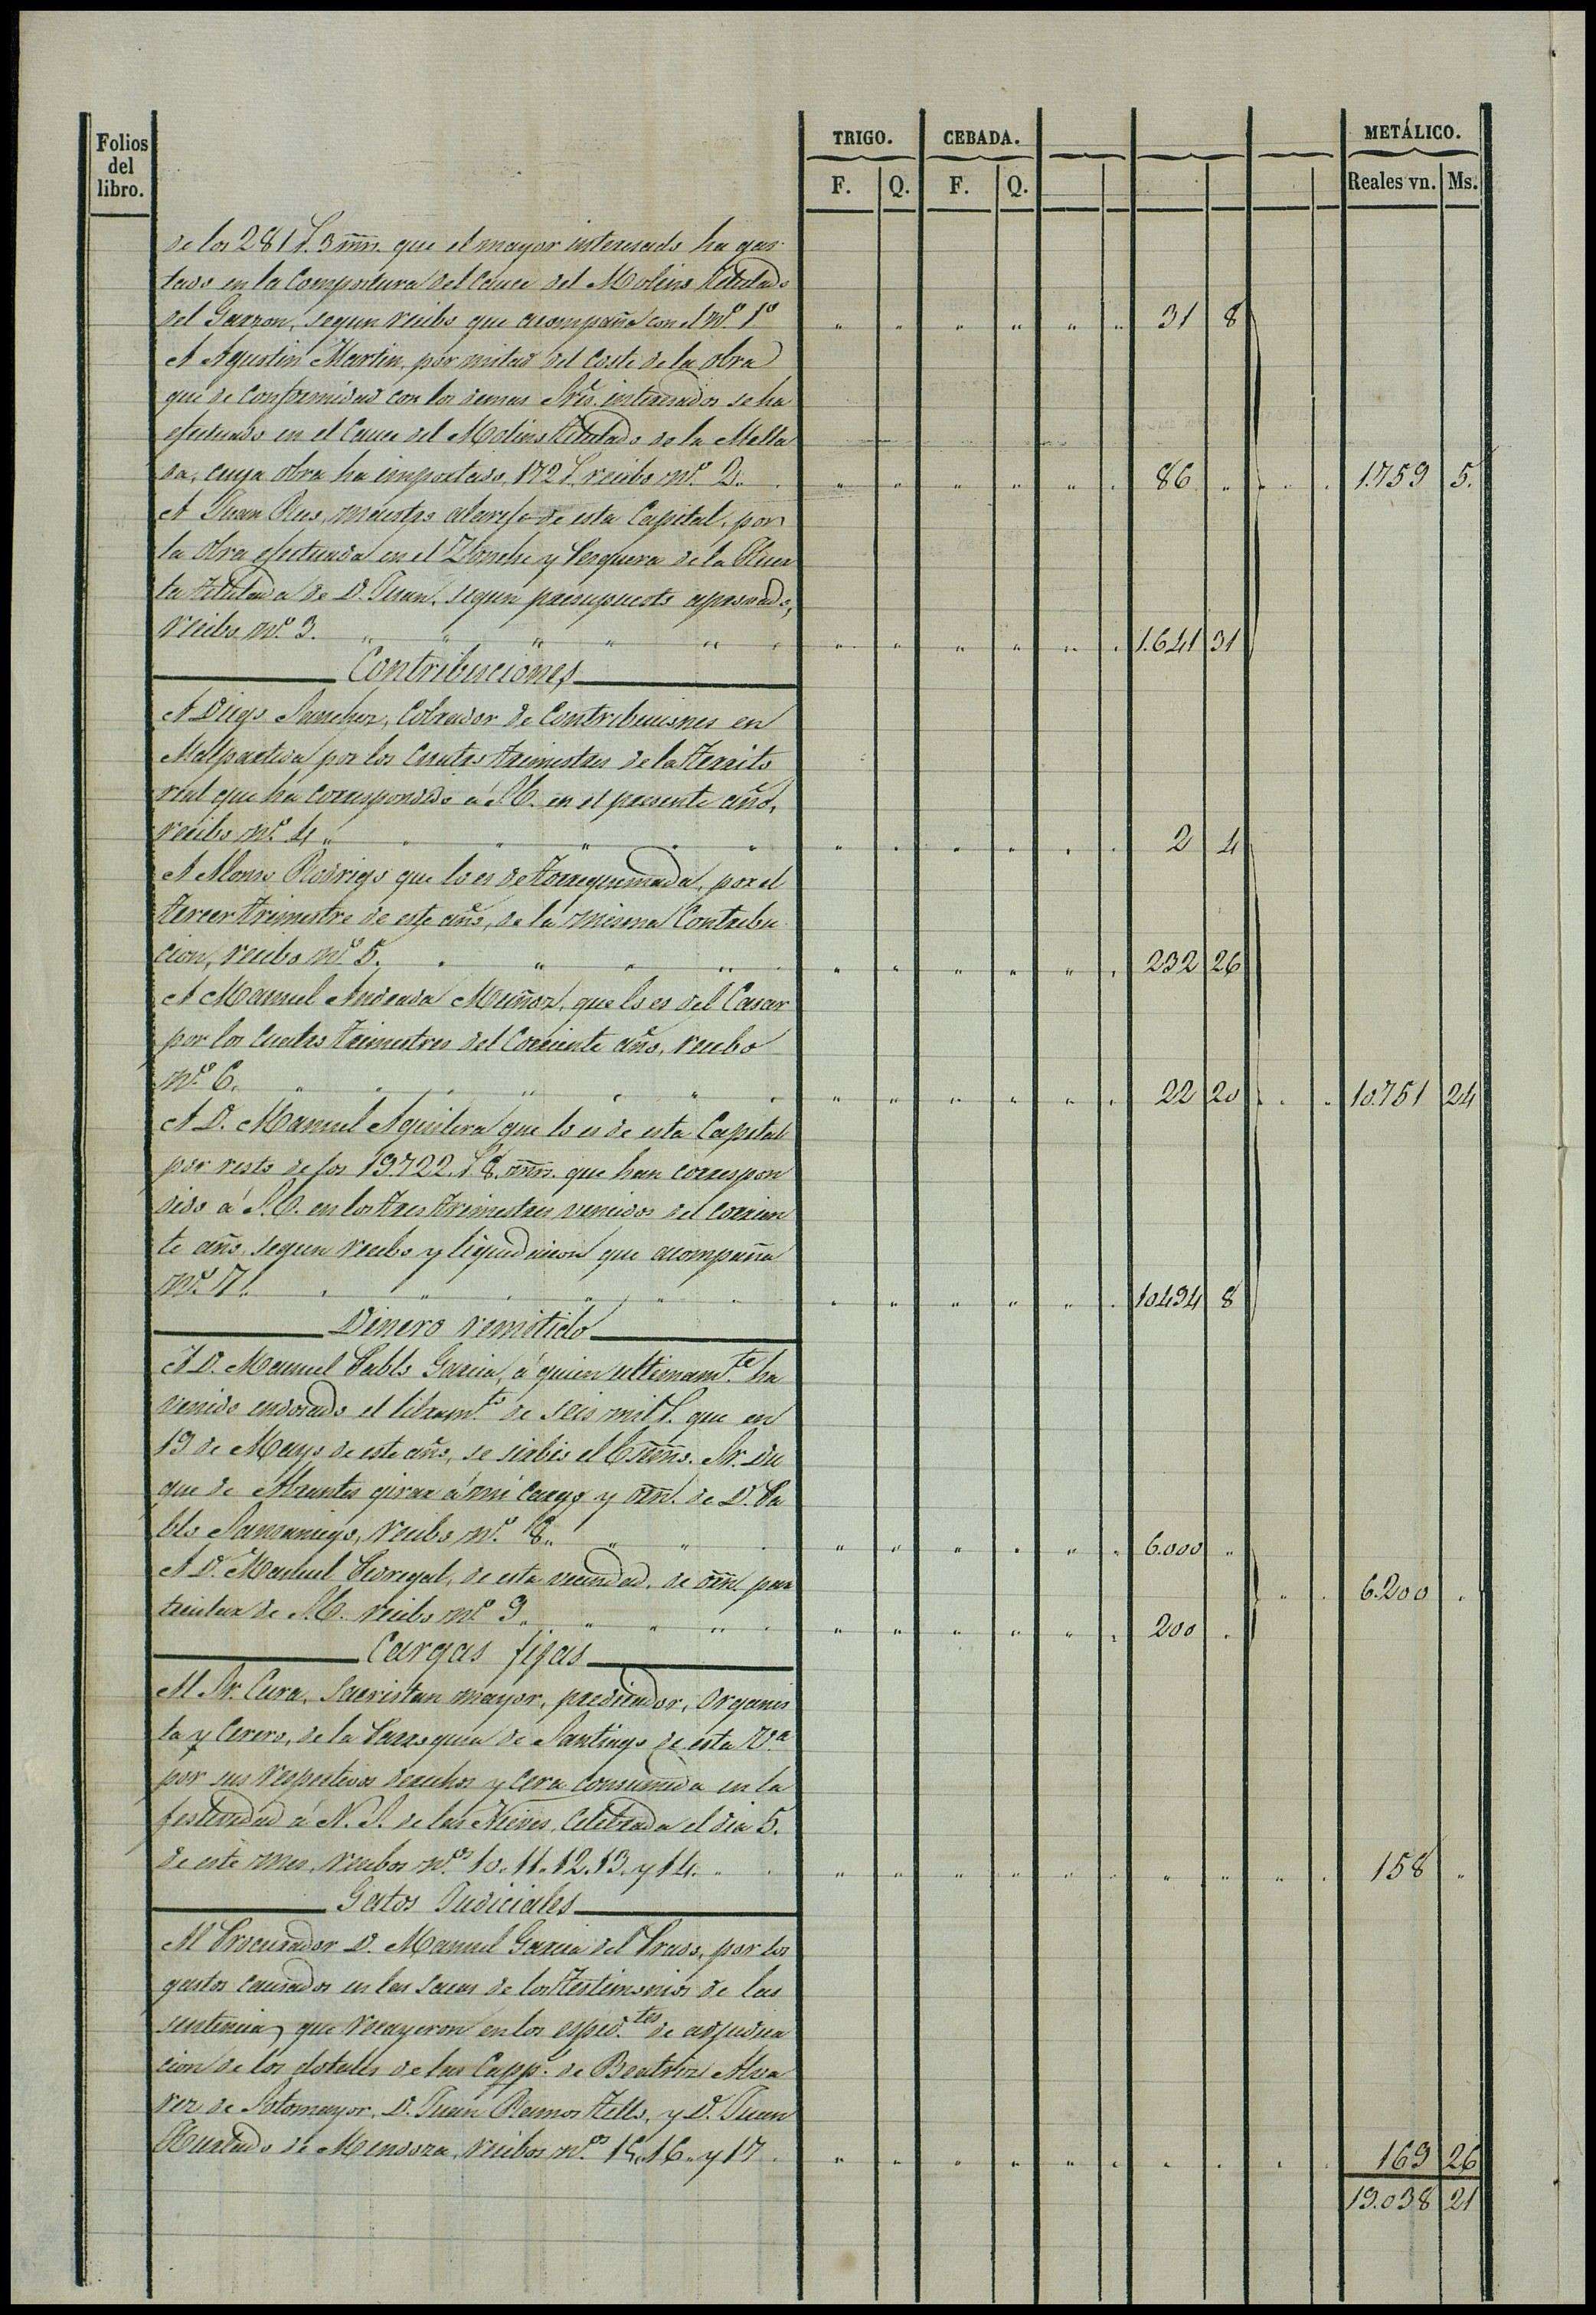 Folios del libro.
TRIGO. CEBADA. METÁLICO.
F. Q. F. Q. Reales vn. Ms.
de los 281 r. 3 mrs. que el mayor interesado ha gas
tado en la Compostura del Cauce del Molino titulado
del Garzon, segun recibo que acompaña con el nº 1º " " " " " " 31 8
A Agustin Martin, por mitad del coste de la obra
que de conformidad con los demas Sres. interesados se ha
efectuado en el Cauce del Molino titulado de la Mella
da, cuya obra ha importado, 172 r. recibo nº 2. " " " " " " 86 " " " 1.759 5.
A Juan Rus, maestro alarife de esta Capital, por
la obra efectuada en el Zanche y Pesquera de la Huer
ta titulada de D. Juan, segun presupuesto aprovado,
recibo nº 3. " " " " " " 1.641 31
Contribuciones
A Diego Sanchez, Cobrador de Contribuciones en
Malpartida por los Cuatro trimestres de la territo
rial que ha correspondido á S.E. en el presente año,
recibo nº 4 " " " " " " 2 4
A Alonso Rodrigo que lo es de Torrequemada, por el
tercer trimestre de este año, de la misma Contribu
cion, recibo nº 5. " " " " " " 232 26
A Manuel Andrada Muñoz, que lo es del Casar
por los Cuatro trimestres del Corriente año, recibo
nº 6. " " " " " " 22 20 " " 10.751 24
A D. Manuel Aguilera que lo es de esta Capital
por resto de los 19.722. r. 8. mrs. que han correspon
dido á S.E. en los tres trimestres vencidos del corrien
te año, segun recibo y liquidacion que acompaña
nº 7. " " " " " " 10494 8
Dinero remitido
A D. Manuel Pablo Garcia, á quien ultimamte. ha
venido endosado el libramto. de seis mil r. que en
19 de Mayo de este año, se sirbió el Escmo. Sr. Du
que de Abrantes girar á mi cargo y orn. de D. Pa
blo Samaniego, recibo nº 8. " " " " " " 6.000 "
A D. Manuel Pedregal, de esta vecindad, de orn. par
ticular de S.E. recibo nº 9. " " " " " " 200 " " " 6.200 "
Cargas fijas
Al Sr. Cura, Sacristan mayor, predicador, Organis
ta y Cerero, de la Parroquia de Santiago de esta Va.
por sus respectivos derechos y cera consumida en la
festividad á N. S. de las Nieves, Celebrada el dia 5.
de este mes, recibos nos. 10. 11. 12. 13. y 14. " " " " " " " " " " 158 "
Gatos Judiciales
Al Procurador D. Manuel Garcia del Prado, por los
gastos causados en las sacas de los testimonios de las
sentencias que recayeron en los espedtes. de adjudica
cion de los dotales de las Capps. de Beatriz Alva
rez de Sotomayor, D. Juan Ramos Tello, y D. Juan
Hurtado de Mendoza, recibos nos. 15. 16. y 17 " " " " " " " " " " 169 26
19.038 21